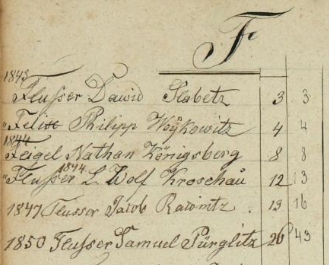 F
1843
Flusser Dawid Slabetz 3 3
Felix Philipp Woÿkowitz 4 4
1844
Feigel Nathan Königsberg 8 8
1844
Flusser L. Wolf Kroschau 12 13
1847 Flusser Jacob Rawnitz . 13 16
1850 Flusser Samuel Pürglitz 26 43